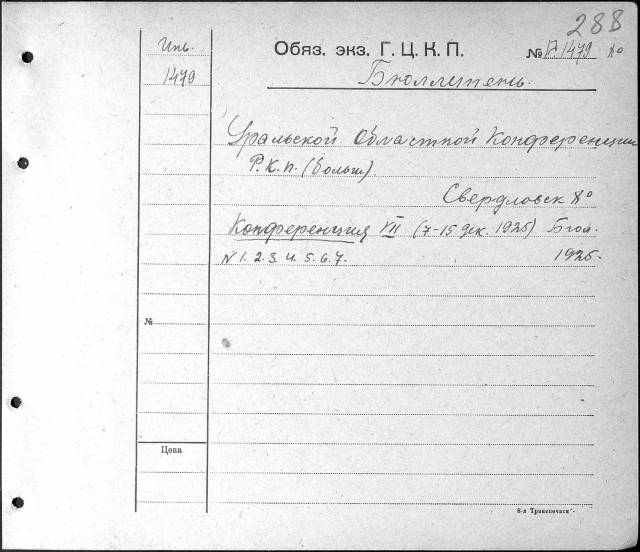 288
Инв. Обяз. экз. Г. Ц. К. П. № 1479 8°
1479 Бюллетень.
Уральской Областной Конференции
Р.К.П. (больш).
Свердловск 8°
Конференция VII (7-15 дек. 1925) Бюл.
N 1. 2. 3. 4. 5. 6. 7. 1925.
№
Цена
8-я Транспечати